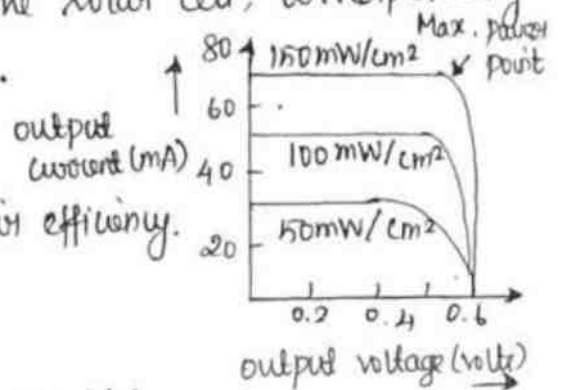 the solar cell,
Max. power
point
80
150mW/cm²
60
output
current (mA)
40
100 mW/cm²
efficiency.
20
50mW/cm²
0.2 0.4 0.6
output voltage (volts)